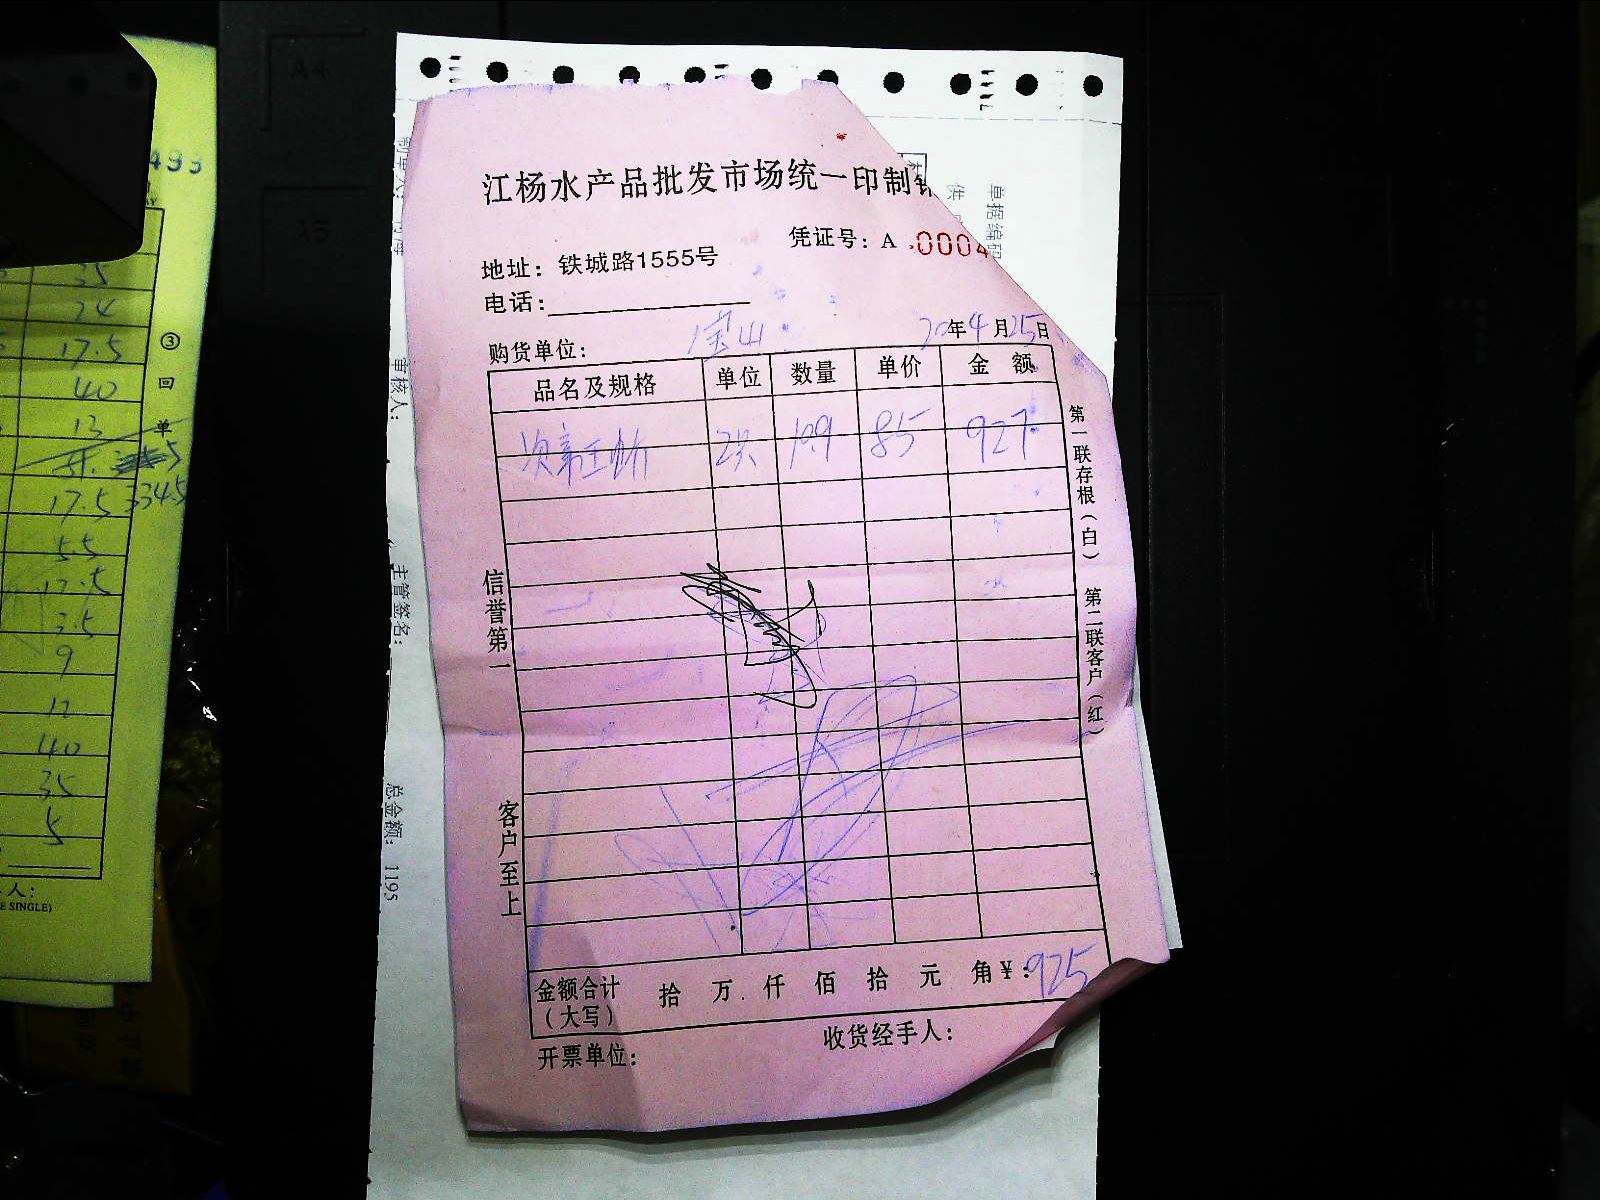 江杨水产品批发市场统一印制
凭证号：A 0004
地址：铁城路1555号
电话：
购货单位： 宝山 20年4月25日
品名及规格 单位 数量 单价 金额
10.9 85 927
金额合计（大写） 拾 万 仟 佰 拾 元 角 ¥：925
开票单位： 收货经手人：
信誉第一
客户至上
第一联存根（白） 第二联客户（红）
单据编码
供
审核人：
主管签名：
总金额：1195
A4
493
35
24
17.5
40
13
17.5 334.5
5.5
17.5
3.5
9
12
40
35
5
③回单
人：
E SINGLE)